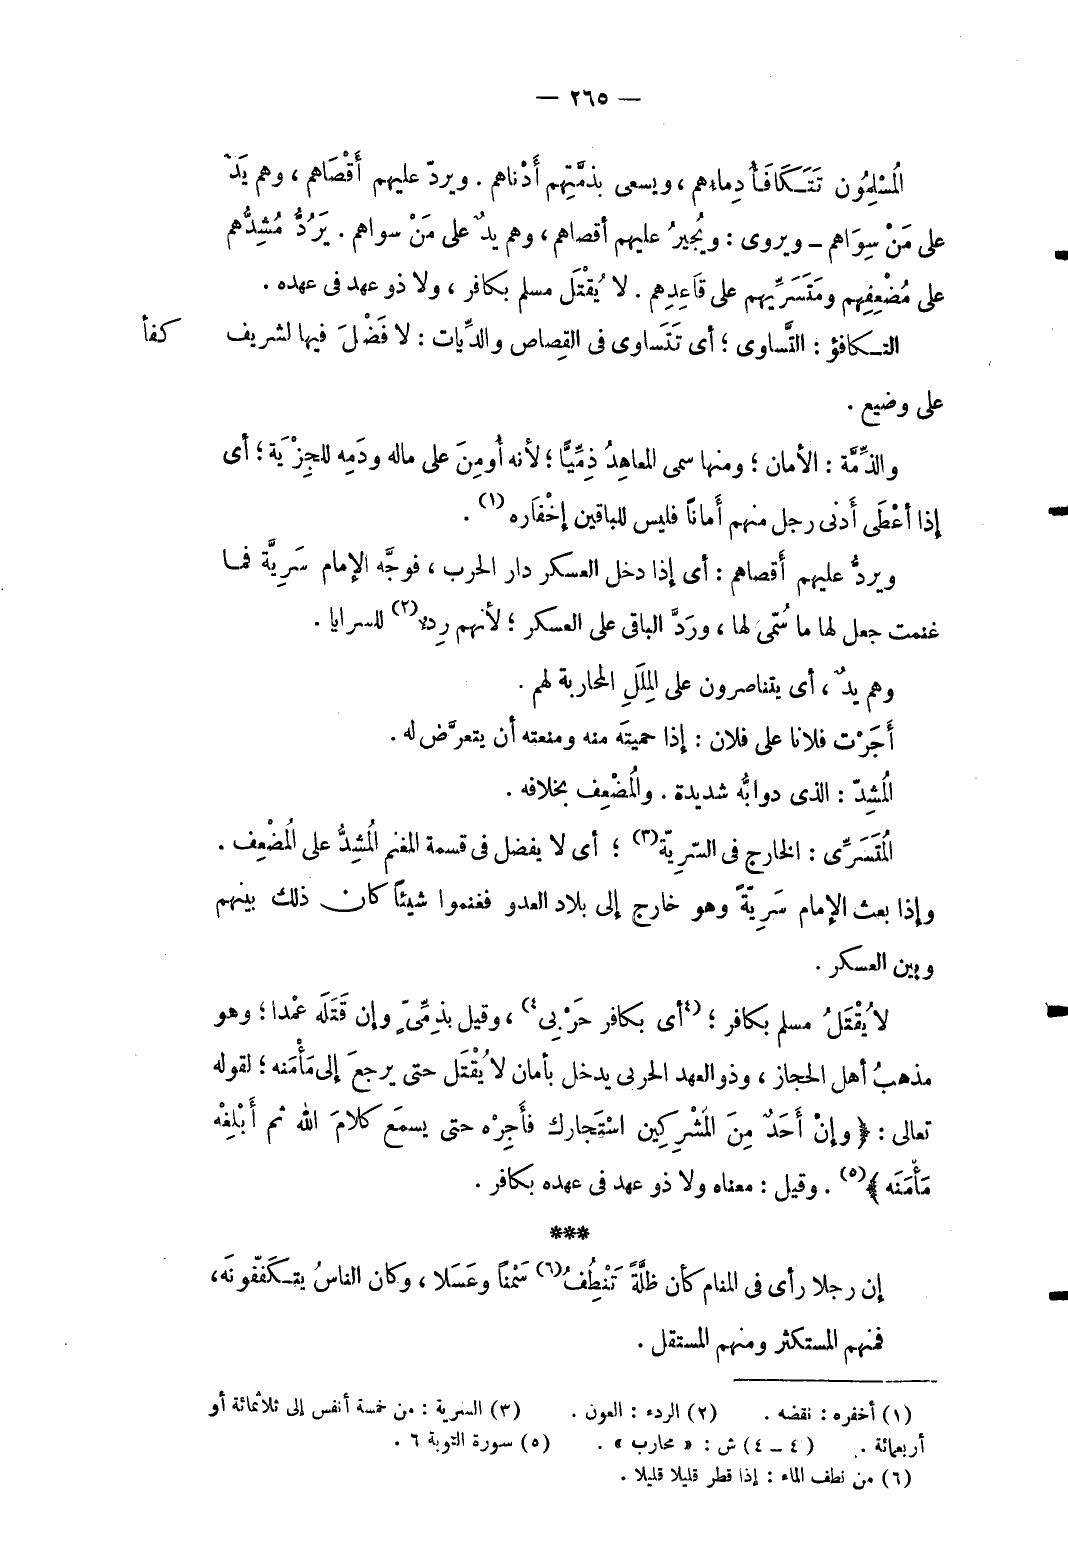 — ٢٦٥ —
المُسْلِمُون تَتَكَافَأُ دِماءهم ، ويسعى بذمَّتِهم أَدْناهم . ويردّ عليهم أَقْصَاهم ، وهم يَدٌ
على مَنْ سِوَاهم – ويروى : ويُجيرُ عليهم أقصاهم ، وهم يدٌ على مَنْ سواهم . يَرُدُّ مُشِدُّهم
على مُضْعِفِهم ومَتَسَرِّيهم على قَاعِدِهم . لا يُقْتَل مسلم بكافر ، ولا ذو عهد فى عهده .
التكافؤ : التَّساوى ؛ أى تَتَساوى فى القِصاص والدِّيات : لا فَضْلَ فيها لشريف
كفأ
على وضيع .
والذِّمَّة : الأمان ؛ ومنها سمى المعاهِدُ ذِمِّيًّا ؛ لأنه أُومِنَ على ماله ودَمِه للجِزْيَة ؛ أى
إذا أعْطَى أَدنى رجل منهم أَماناً فليس للباقين إخْفَاره (١) .
ويردُّ عليهم أَقصاهم : أى إذا دخل العسكر دار الحرب ، فوجَّه الإمام سَرِيَّة فما
غنمت جعل لها ما سُمّى لها ، ورَدَّ الباقى على العسكر ؛ لأنهم رِدء(٢) للسرايا .
وهم يدٌ ، أى يتناصرون على المِلَلِ المحاربة لهم .
أَجَرْت فلانا على فلان : إذا حميتَه منه ومنعته أن يتعرَّض له .
المُشِدّ : الذى دوابُّه شديدة . والمُضْعِف بخلافه .
المُتَسَرِّى : الخارج فى السّرِيّة(٣) ؛ أى لا يفضل فى قسمة المغنم المُشِدُّ على المُضْعِف .
وإذا بعث الإمام سَرِيّةً وهو خارج إلى بلاد العدو فغنموا شيئاً كان ذلك بينهم
وبين العسكر .
لا يُقْتَلُ مسلم بكافر ؛ (٤أى بكافر حَرْبِى٤) ، وقيل بذِمِّىّ وإن قَتَلَه عمْدا ؛ وهو
مذهبُ أهل الحجاز ، وذو العهد الحربى يدخل بأمان لا يُقْتَل حتى يرجعَ إلى مَأْمَنه ؛ لقوله
تعالى : ﴿ وإنْ أَحَدٌ مِنَ المُشْرِكِين اسْتَجارك فأَجِرْه حتى يسمعَ كلامَ الله ثم أَبْلِغْه
مَأْمَنَه ﴾(٥) . وقيل : معناه ولا ذو عهد فى عهده بكافر .
***
إن رجلا رأى فى المنام كأن ظلَّةً تَنْطِفُ(٦) سَمْناً وعَسَلا ، وكان الناسُ يتكَفَّفونَه،
فمنهم المستكثر ومنهم المستقل .
(١) أخفره : نقضه . (٢) الردء : العون . (٣) السرية : من خمسة أنفس إلى ثلاثمائة أو
أربعمائة . (٤ – ٤) ش : « محارب » . (٥) سورة التوبة ٦ .
(٦) من نطف الماء : إذا قطر قليلا قليلا .